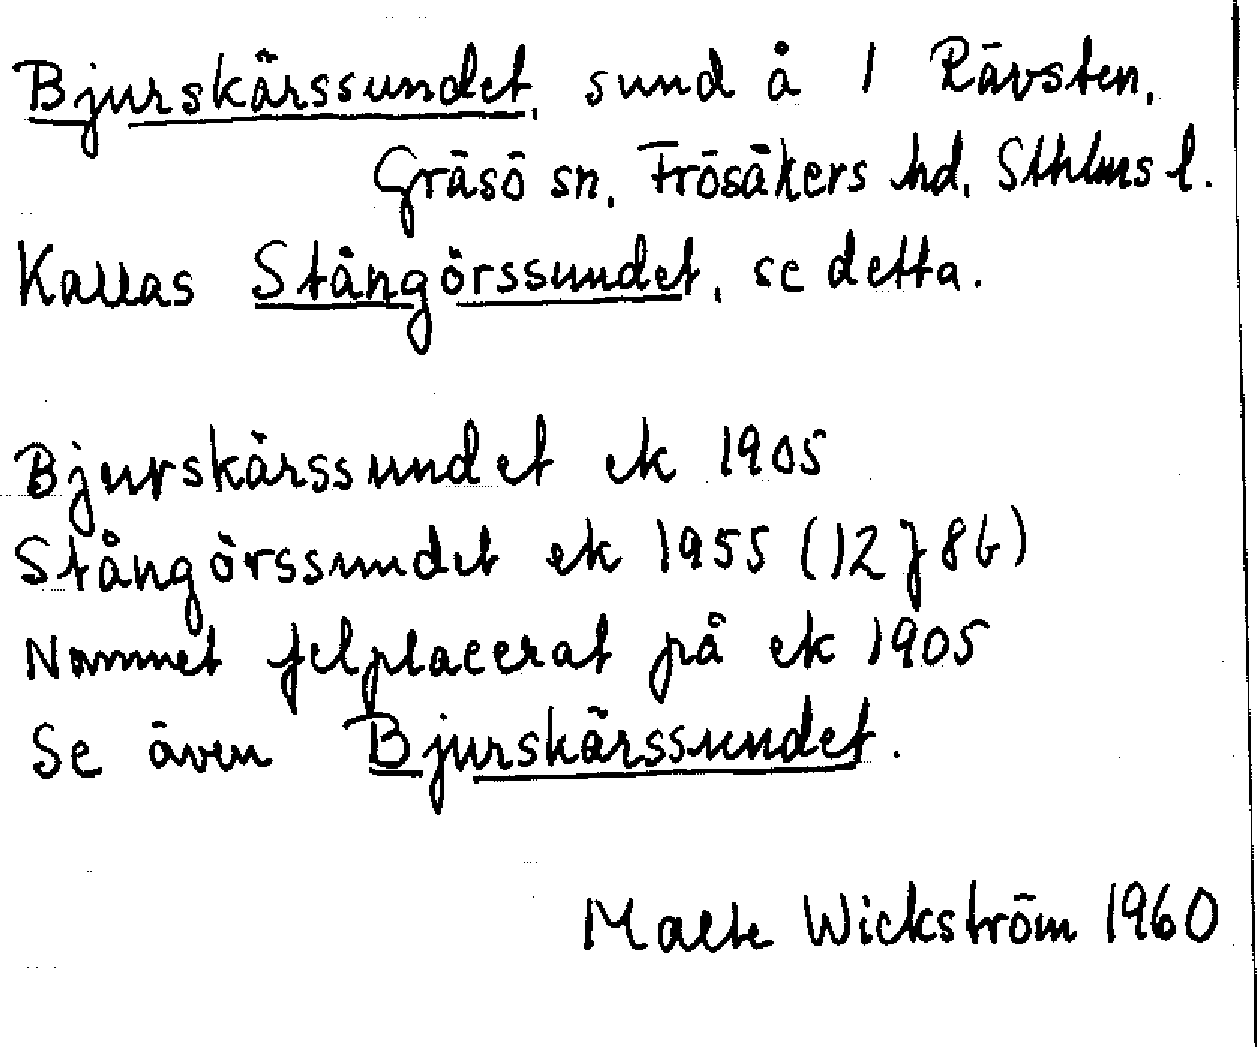 Bjurskärssundet, sund å 1 Rävsten,
Gräsö sn, Frösåkers hd, Sthlms l.
Kallas Stångörssundet, se detta.
Bjurskärssundet ek 1905
Stångörssundet ek 1955 (12 J 8 b)
Namnet felplacerat på ek 1905
Se även Bjurskärssundet.
Malte Wickström 1960